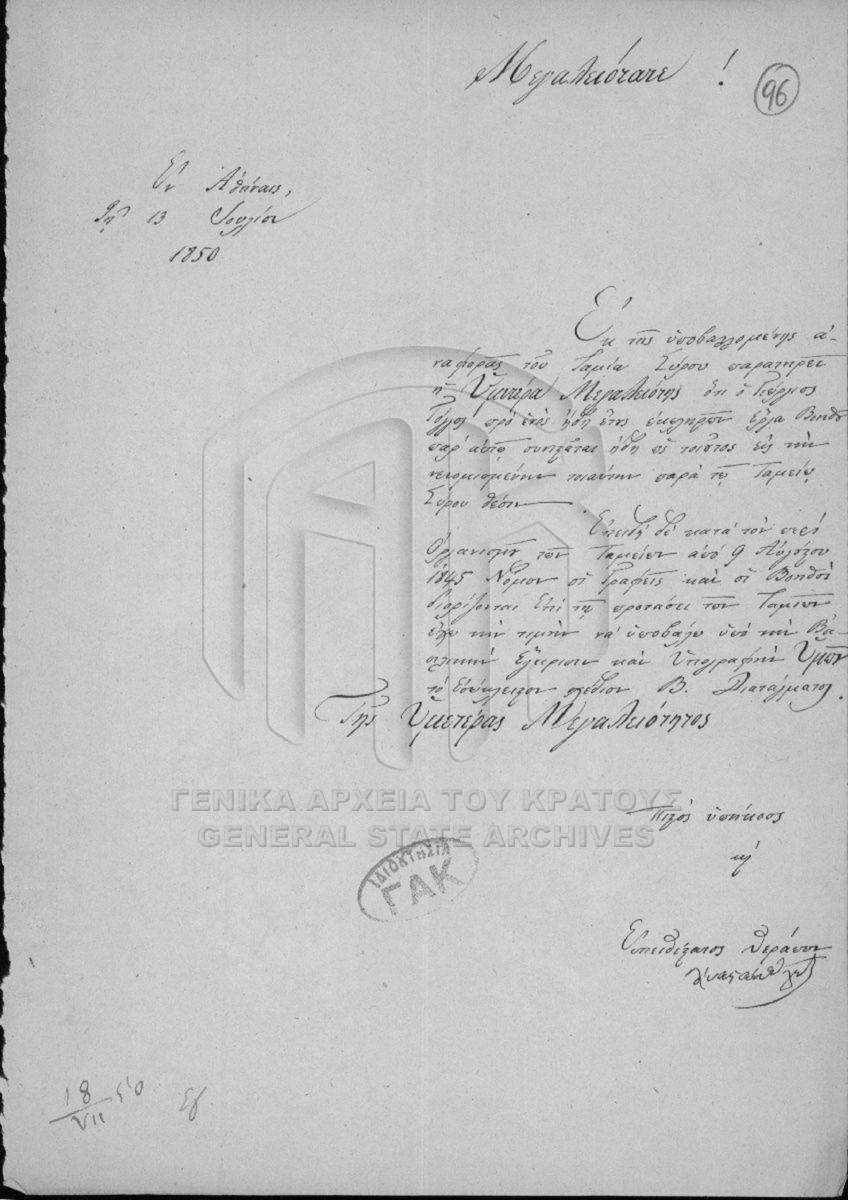 Μεγαλειότατε !
96
Ἐν Ἀθήναις,
τῇ 13 Ἰουλίου
1850
Ἐκ τῆς ὑποβαλλομένης ἀ-
ναφορᾶς τοῦ Ταμία Σύρου παρατηρεῖ
ἡ Ὑμετέρα Μεγαλειότης ὅτι ὁ Γεώργιος
πρὸ ἑνὸς ἤδη ἔτους ἐκπληρῶν ἔργα Βοηθοῦ
παρ' αὐτῷ συνίσταται ἤδη ὡς τοιοῦτος εἰς τὴν
νενομισμένην τοιαύτην παρὰ τῷ Ταμείῳ
Σύρου θέσιν
Ἐπειδὴ δὲ κατὰ τὸν περὶ
Ὀργανισμοῦ τῶν Ταμείων ἀπὸ 9 Αὐγούστου
1845 Νόμον οἱ Γραφεῖς καὶ οἱ Βοηθοὶ
διορίζονται ἐπὶ τῇ προτάσει τῶν Ταμιῶν
ἔχω τὴν τιμὴν νὰ ὑποβάλω ὑπὸ τὴν Βα-
σιλικὴν ἔγκρισιν καὶ ὑπογραφὴν Ὑμῶν
τὸ ἐσώκλειστον σχέδιον Β. Διατάγματος.
Τῆς Ὑμετέρας Μεγαλειότητος
Πιστὸς ὑπήκοος
κ
Εὐπειθέστατος θεράπων
ΓΕΝΙΚΑ ΑΡΧΕΙΑ ΤΟΥ ΚΡΑΤΟΥΣ
GENERAL STATE ARCHIVES
ΙΔΙΟΚΤΗΣΙΑ
ΓΑΚ
18 50
VII